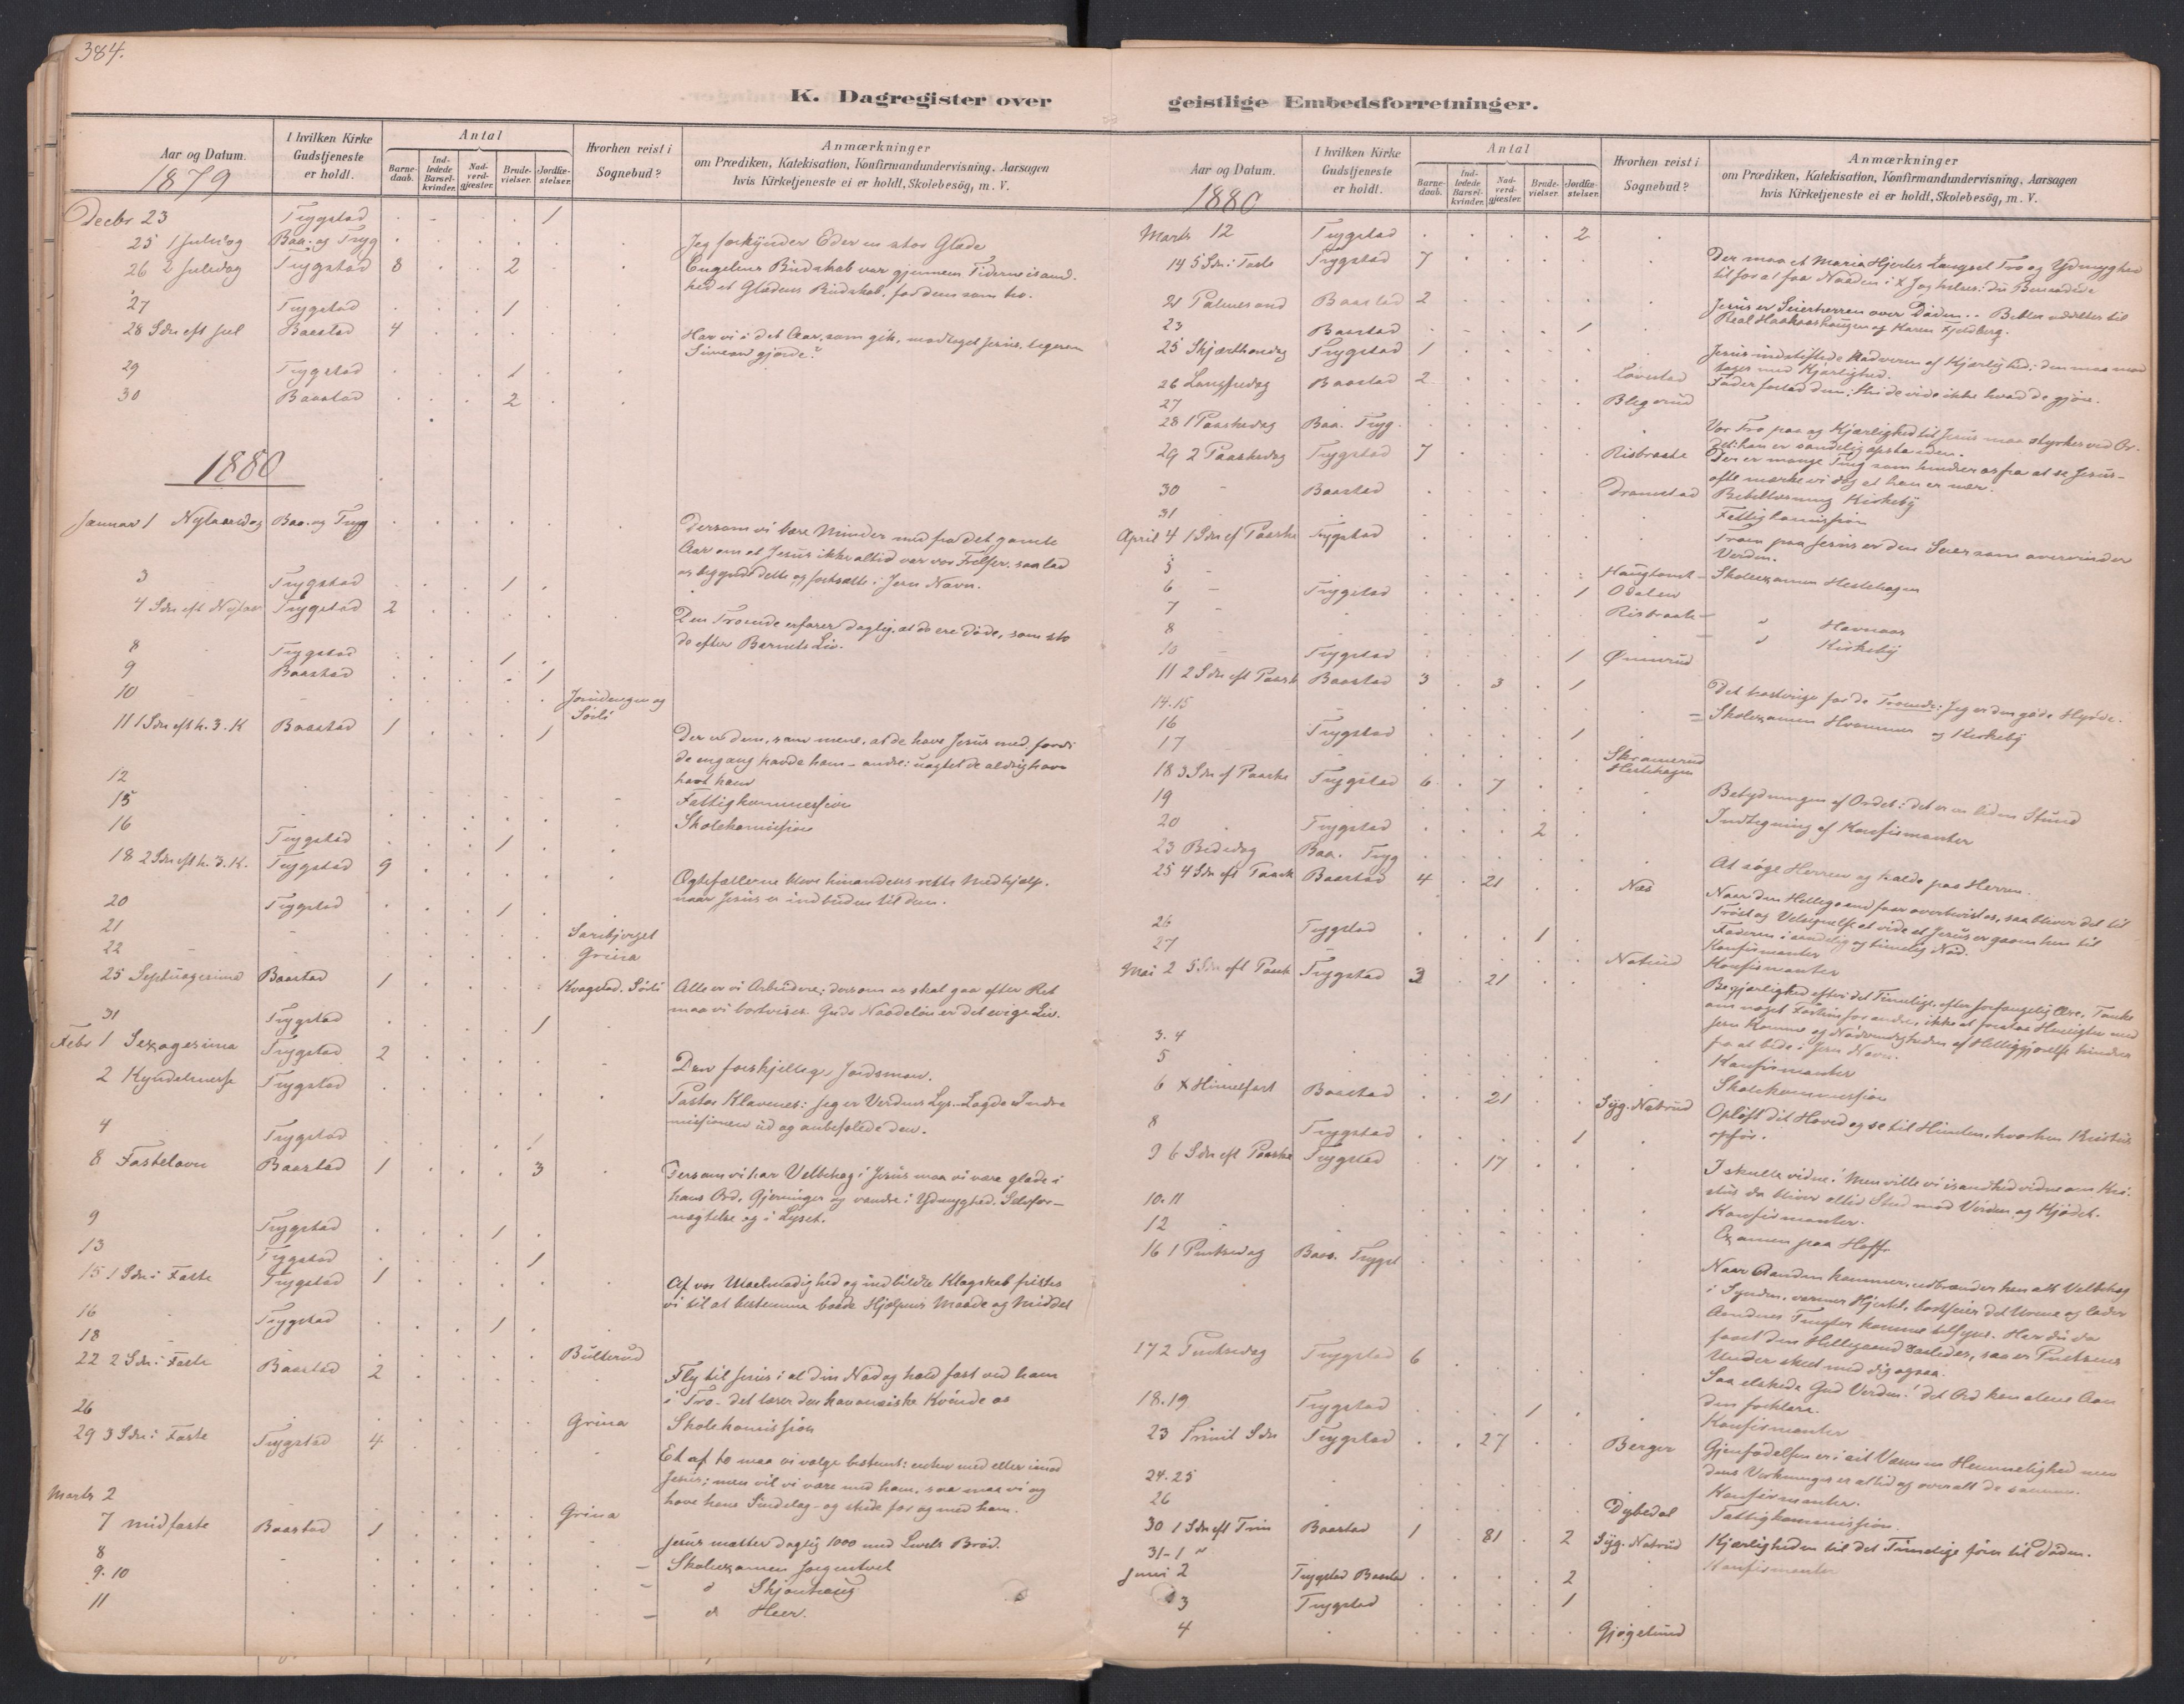 384.
K. Dagregister over
Aar og Datum.
1879
I hvilken Kirke
Gudstjeneste
er holdt.
Antal
Barne-
daab.
Ind-
ledede
Barsel-
kvinder.
Nad-
verd-
gjæster.
Brude-
vielser.
Jordfæ-
stelser.
Hvorhen reist i
Sognebud?
Anmærkninger
om Prædiken, Katekisation, Konfirmandundervisning, Aarsagen
hvis Kirketjeneste ei er holdt, Skolebesög, m. V.
Decbr 23 Trygstad . - . . 1
25 1 Juledag Baa. og Tryg . . . . . . Jeg forkynder Eder en stor Glæde
26 2 Juledag Trygstad 8 . . 2 . . Engelens Budskab var gjennem Tiderne isand-
hed et Glædens Budskab, for dem som tro.
27 Trygstad . . . 1 . .
28 Sdn eft Jul Baastad 4 . . . . . Har vi i det Aar, som gik, modtaget Jesus, ligesom
Simeon gjorde?
29 Trygstad . . . 1 . .
30 Baastad . . . 2 . .
1880
Januar 1 Nytaarsdag Baa. og Tryg . . . . . . Dersom vi bære Minder med fra det gamle
Aar om at Jesus ikke altid var vor Frelser, saa lad
os begynde dette og fortsætte i Jesu Navn.
3 Trygstad . . . 1 .
4 Sdn eft Nytaar Trygstad 2 . . . . . Den Troende erfarer daglig, at de ere døde, som sto
de efter Barnets Liv.
8 Trygstad . . . 1 .
9 Baastad . . . . 1
10 - . . . . . og
Sörli
11 1 Sdn eft h. 3. K Baastad 1 . . . 1 . Der er dem, som mene, at de have Jesus med fordi
de engang havde ham - andre: uagtet de aldrig have
havt ham
12 Fattigkommission
15 Skolekomission
16 Trygstad . . . 1 .
18 2 Sdn eft h. 3. K. Trygstad 9 . . . . . Ægtefællerne bleve hinandens rette Medhjælp,
naar Jesus er indbuden til dem.
20 Trygstad . . . 1 . .
21 Sarubjerget
22 Grina
25 Septuagesima Baastad 1 . . . . Kvagstad. Sörli Alle er vi Arbeidere; dersom os skal gaa efter Ret
maa vi bortvises. Guds Naadelön er det evige Liv.
31 Trygstad . . . . 1 .
Febr 1 Sexagesima Trygstad 2 . . . . . Den forskjellige Jordsmon.
2 Kyndelmesse Trygstad . . . . . . Pastor Klavenes: Jeg er Verdens Lys. Lagde Indre
missionen ud og anbefalede den.
4 Trygstad . . . . 1
8 Fastelavn Baastad 1 . . . 3 . Dersom vi har Velbehag i Jesus maa vi være glade i
hans Ord, Gjerninger og vandre i Ydmyghed, Selvfor-
nægtelse og i Lyset.
9 Trygstad . . . 1 .
13 Trygstad . . . . 1
15 1 Sdn i Faste Trygstad 1 . . . . . Af vor Utaalmodighed og indbildte Klogskab fristes
vi til at bestemme baade Hjælpens Maade og Middel
16 Trygstad . . . 1 .
18 - Bulterud
22 2 Sdn i Faste Baastad 2 . . . . . Fly til Jesus i al din Nöd og hold fast ved ham
i Tro. det lærer den kananæiske Kvinde os
26 Grina Skolekomission
29 3 Sdn i Faste Trygstad 4 . . . . . Et af to maa vi vælge bestemt: enten med eller imod
Jesus; men vil vi være med ham, saa maa vi og
have hans Sindelag - og stride for og med ham.
Marts 2 Grina
7 Midfaste Baastad 1 . . . . . Jesus mætter daglig 1000 med Livets Bröd.
8 Skolexamen
9. 10 d Skjönhaug
11 d Heer.
geistlige Embedsforretninger.
Aar og Datum.
1880
I hvilken Kirke
Gudstjeneste
er holdt.
Antal
Barne-
daab.
Ind-
ledede
Barsel-
kvinder.
Nad-
verd-
gjæster.
Brude-
vielser.
Jordfæ-
stelser.
Hvorhen reist i
Sognebud?
Anmærkninger
om Prædiken, Katekisation, Konfirmandundervisning, Aarsagen
hvis Kirketjeneste ei er holdt, Skolebesög, m. V.
Marts 12 Trygstad . . . . 2 .
14 5 Sdn i Faste Trygstad 7 . . . . . Der maa et Maria Hjertes Længsel Tro og Ydmyghed
til for at faa Naaden i
21 Palmesönd Baastad 2 . . . . . Jesus er Seierherren over Döden.. Bibler uddeltes til
og Karen Fjeldberg.
23 Baastad . . . . 1 .
25 Skjærthorsdag Trygstad 1 . . . . . Jesus indstiftede Nadveren af Kjærlighed; den maa mod
tages med Kjærlighed.
26 Langfredag Baastad 2 . . . . Lövestad Fader forlad dem, thi de vide ikke hvad de gjöre.
27 Blegerud
28 1 Paaskedag Baa. Tryg. . . . . . . Vor Tro paa og Kjærlighed til Jesus maa styrkes ved Or-
det: han er sandelig opstanden.
29 2 Paaskedag Trygstad 7 . . . . Risbraate Der er mange Ting som hindrer os fra at se Jesus -
ofte mærke vi dog at han er nær.
30 - Baastad . . . . . Dramstad Bibellæsning Kirkeby
31 Fattigkomission
April 4 1 Sdn ef Paaske Trygstad . . . . . . Troen paa Jesus er den Seier som overvinder
Verden.
5 - Haugtomt - Skolexamen Hestehagen
6 - Trygstad . . . . 1 Odalen
7 - Risbraate - " Havnaas
8 - " Kirkeby
10 - Trygstad . . . . 1 Ömerud
11 2 Sdn eft Paask Baastad 3 . 3 . 1 Det for de Troende: Jeg er den gode Hyrde.
14. 15 Skolexamen Hvammer og Kirkeby
16 Trygstad . . . . 1
17 Skramerud
Hestehagen
18 3 Sdn ef Paaske Trygstad 6 . 7 . . . Betydningen af Ordet: det er en liden Stund
19 Indtegning af Konfirmanter
20 Trygstad . . . 2 .
23 Bededag Baa. Tryg . . . . . . At söge Herren og kalde paa Herren.
25 4 Sdn eft Paask Baastad 4 . 21 . . Næs Naar den Helligaand faar overbevist os, saa bliver det til
Tröst og Velsignelse at vide at Jesus er gaaen hen til
Faderen i aandelig og timelig Nöd.
26 Trygstad . . . 1 . Konfirmanter
27 Natrud Konfirmanter
Mai 2 5 Sdn eft Paask Trygstad 3 . 21 . . . Begjærlighed efter det Timelige, efter forfængelig Ære, Tanke
om noget Fortrin for andre, ikke at forstaa Hensigten med
Jesu Komme og Nödvendigheden af Helliggjörelse hindrer
fra at bede i Jesu Navn.
3. 4 Konfirmanter
5 Skolekommission
6 X Himmelfart Baastad . . 21 . . Syg. Natrud Oplöft dit Hoved og se til Himlen, hvorhen Kristus
opfór.
8 Trygstad . . . . 1 .
9 6 Sdn eft Paaske Trygstad . . 17 . . . I skulle vidne! Men ville vi isandhed vidne om Kri-
stus da bliver altid Strid mod Verden og Kjödet.
10. 11 Konfirmanter.
12 Examen paa Hoff
16 1 Pintsedag Baa. Trygst . . . . . . Naar Aanden kommer, udbrænder han alt Velbehag
i Synden, varmer Hjertet, bortfeier det Urene og lader
Aandens Frugter komme tilsyne. Har du da
faaet den Helligaand saaledes, saa er Pintsens
Under skeet med dig ogsaa.
17 2 Pintsedag Trygstad 6 . . . . . Saa elskede Gud Verden! Det Ord kan alene Aan
den forklare.
18. 19 Trygstad . . . 1 . . Konfirmanter
23 Trinit Sdn Trygstad . . 27 . . Berger Gjenfödelsen er i sit Væsen en Hemmelighed men
dens Virkninger er altid og overalt de samme.
24. 25 Konfirmanter.
26 Dybedal Fattigkommission.
30 1 Sdn eft Trin Baastad 1 . 81 . 2 Syg. Natrud Kjærligheden til det Timelige förer til Döden.
31 - 1 " Konfirmanter
Juni 2 Trygstad Baasta . . . . 2 .
3 Trygstad . . . . 1
4 Gjögelund